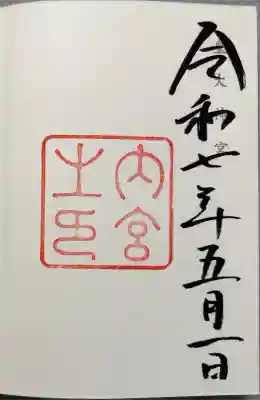 令和七年五月一日
内宮之印